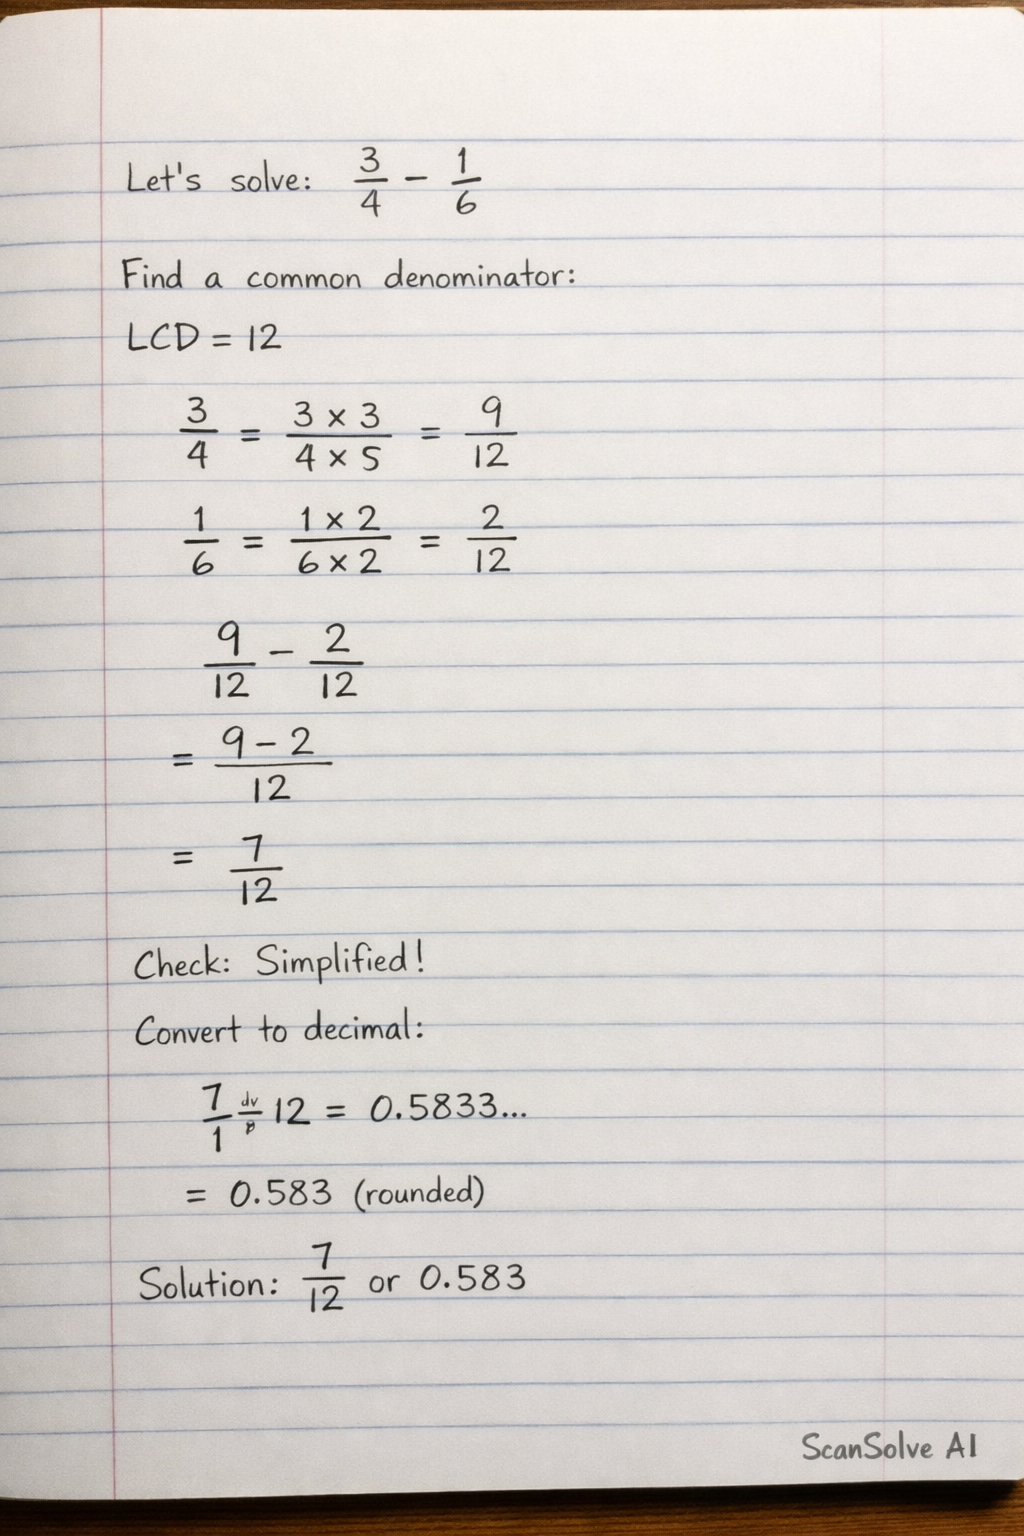 Let's solve: 3/4 − 1/6
Find a common denominator:
LCD = 12
3/4 = (3 × 3)/(4 × 5) = 9/12
1/6 = (1 × 2)/(6 × 2) = 2/12
9/12 − 2/12
= (9 − 2)/12
= 7/12
Check: Simplified!
Convert to decimal:
7/1 ÷ 12 = 0.5833...
= 0.583 (rounded)
Solution: 7/12 or 0.583
ScanSolve AI